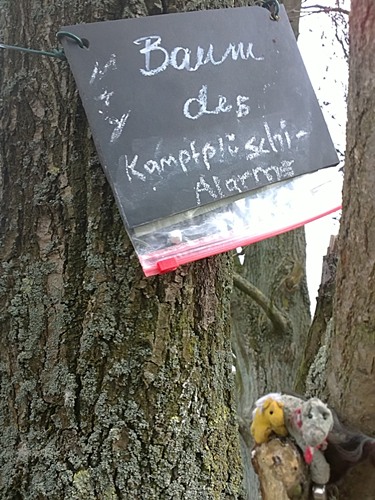 Baum
des
Kampfplüschi-
Alarms